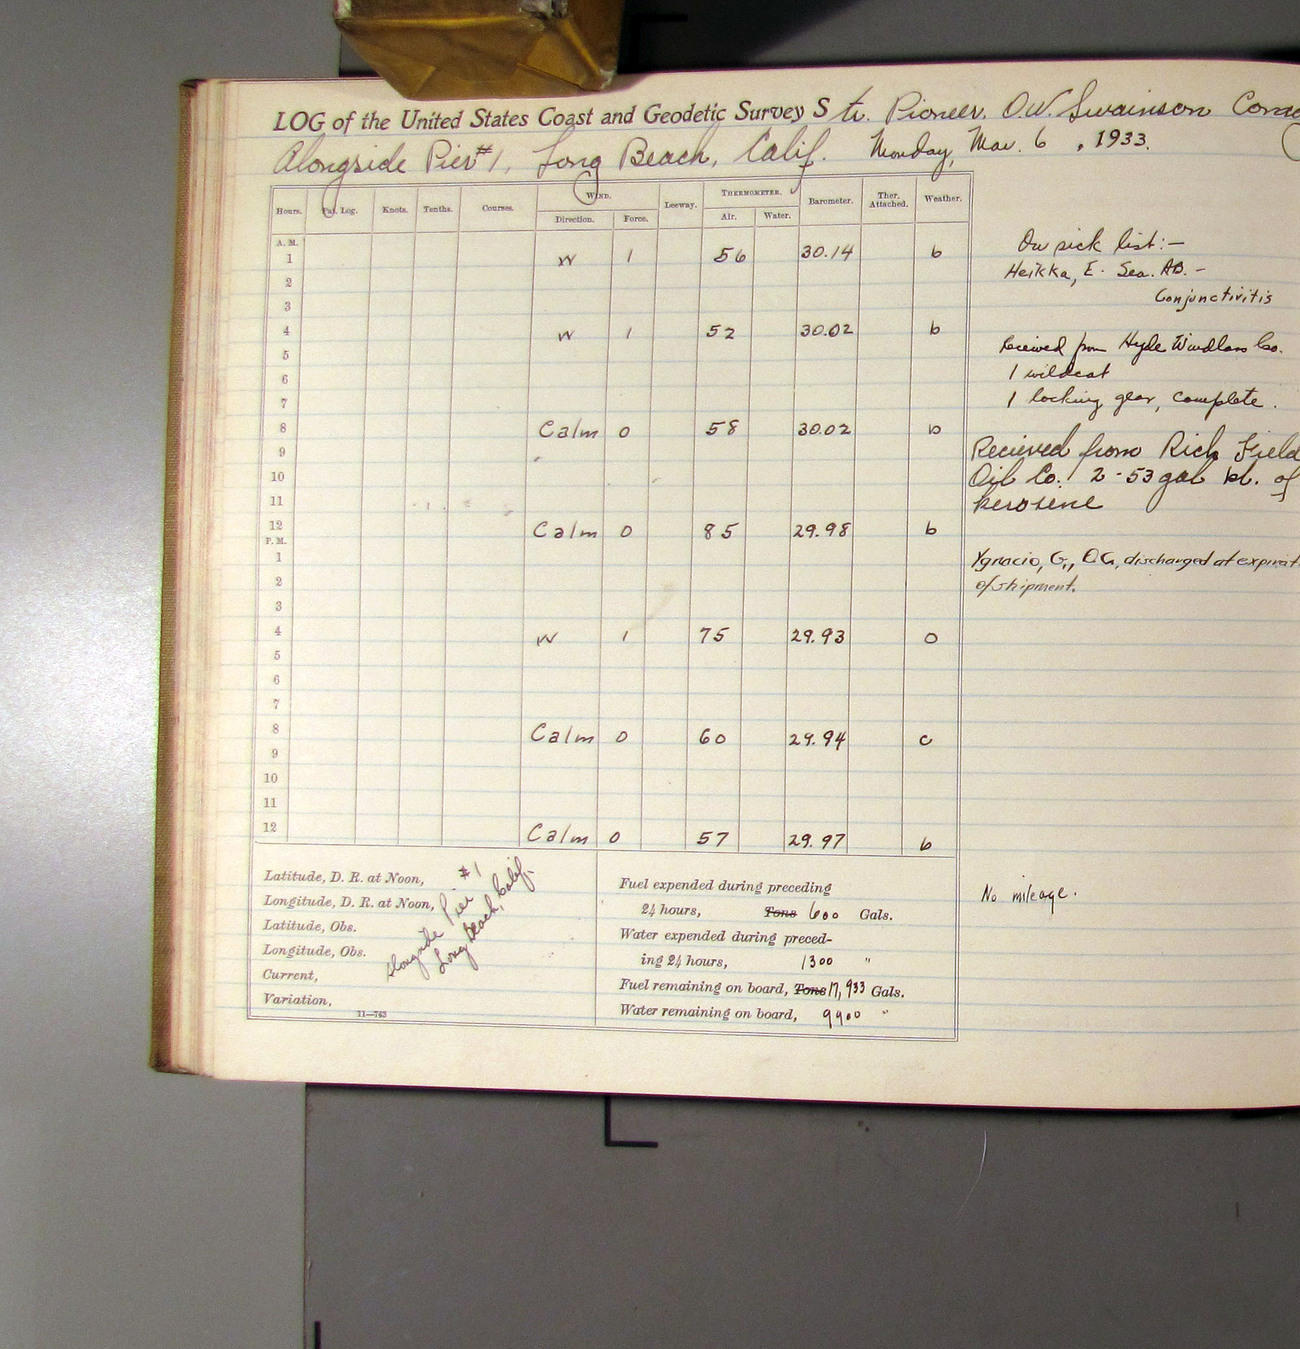 LOG of the United States Coast and Geodetic Survey Str. Pioneer. O.W. Swainson
Alongside Pier #1, Long Beach, Calif. Monday, Mar. 6, 1933.
Hours. Pat. Log. Knots. Tenths. Courses. WIND. Leeway. THERMOMETER. Barometer. Ther. Attached. Weather.
Direction. Force. Air. Water.
A. M.
1 W 1 56 30.14 b
2
3
4 W 1 52 30.02 b
5
6
7
8 Calm 0 58 30.02 b
9
10
11
12 Calm 0 85 29.98 b
P. M.
1
2
3
4 W 1 75 29.93 O
5
6
7
8 Calm 0 60 29.94 c
9
10
11
12 Calm 0 57 29.97 b
On sick list:—
Heikka, E. Sea. AB. —
Conjunctivitis
Received from Hyde Windlass Co.
1 wildcat
1 locking gear, complete.
Recieved from Rich Field
Oil Co. 2-53 gal bl. of
kerosene
Ygnacio, G., discharged at
of shipment.
No mileage.
Latitude, D. R. at Noon,
Longitude, D. R. at Noon,
Latitude, Obs.
Longitude, Obs.
Current,
Variation,
Alongside Pier #1
Long Beach, Calif.
11—743
Fuel expended during preceding
24 hours, Tons 600 Gals.
Water expended during preced-
ing 24 hours, 1300 "
Fuel remaining on board, Tons 17,933 Gals.
Water remaining on board, 9900 "